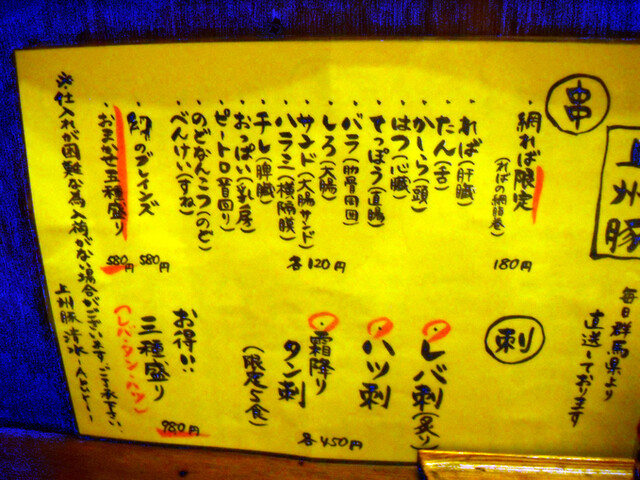 上州豚
毎日群馬県より
直送しております
串
・網れば限定
(ればの網脂巻)
180円
・ればー(肝臓)
・たん(舌)
・かしら(頭)
・はつ(心臓)
・てっぽう(直腸)
・バラ(肋骨周回)
・しろ(大腸)
・サンド(大腸サンド)
・ハラミ(横隔膜)
・チレ(脾臓)
・おっぱい(乳房)
・ピートロ(首回り)
・のどなんこつ(のど)
・べんけい(すね)
各120円
のブレインズ
580円
・おまかせ五種盛り
580円
刺
・レバ刺(炙り)
・ハツ刺
・霜降り
タン刺
(限定5食)
各450円
お得い
三種盛り
(レバ・タン・ハツ)
980円
※仕入れが困難な為入荷がない場合がございます。ご了承下さい
上州豚